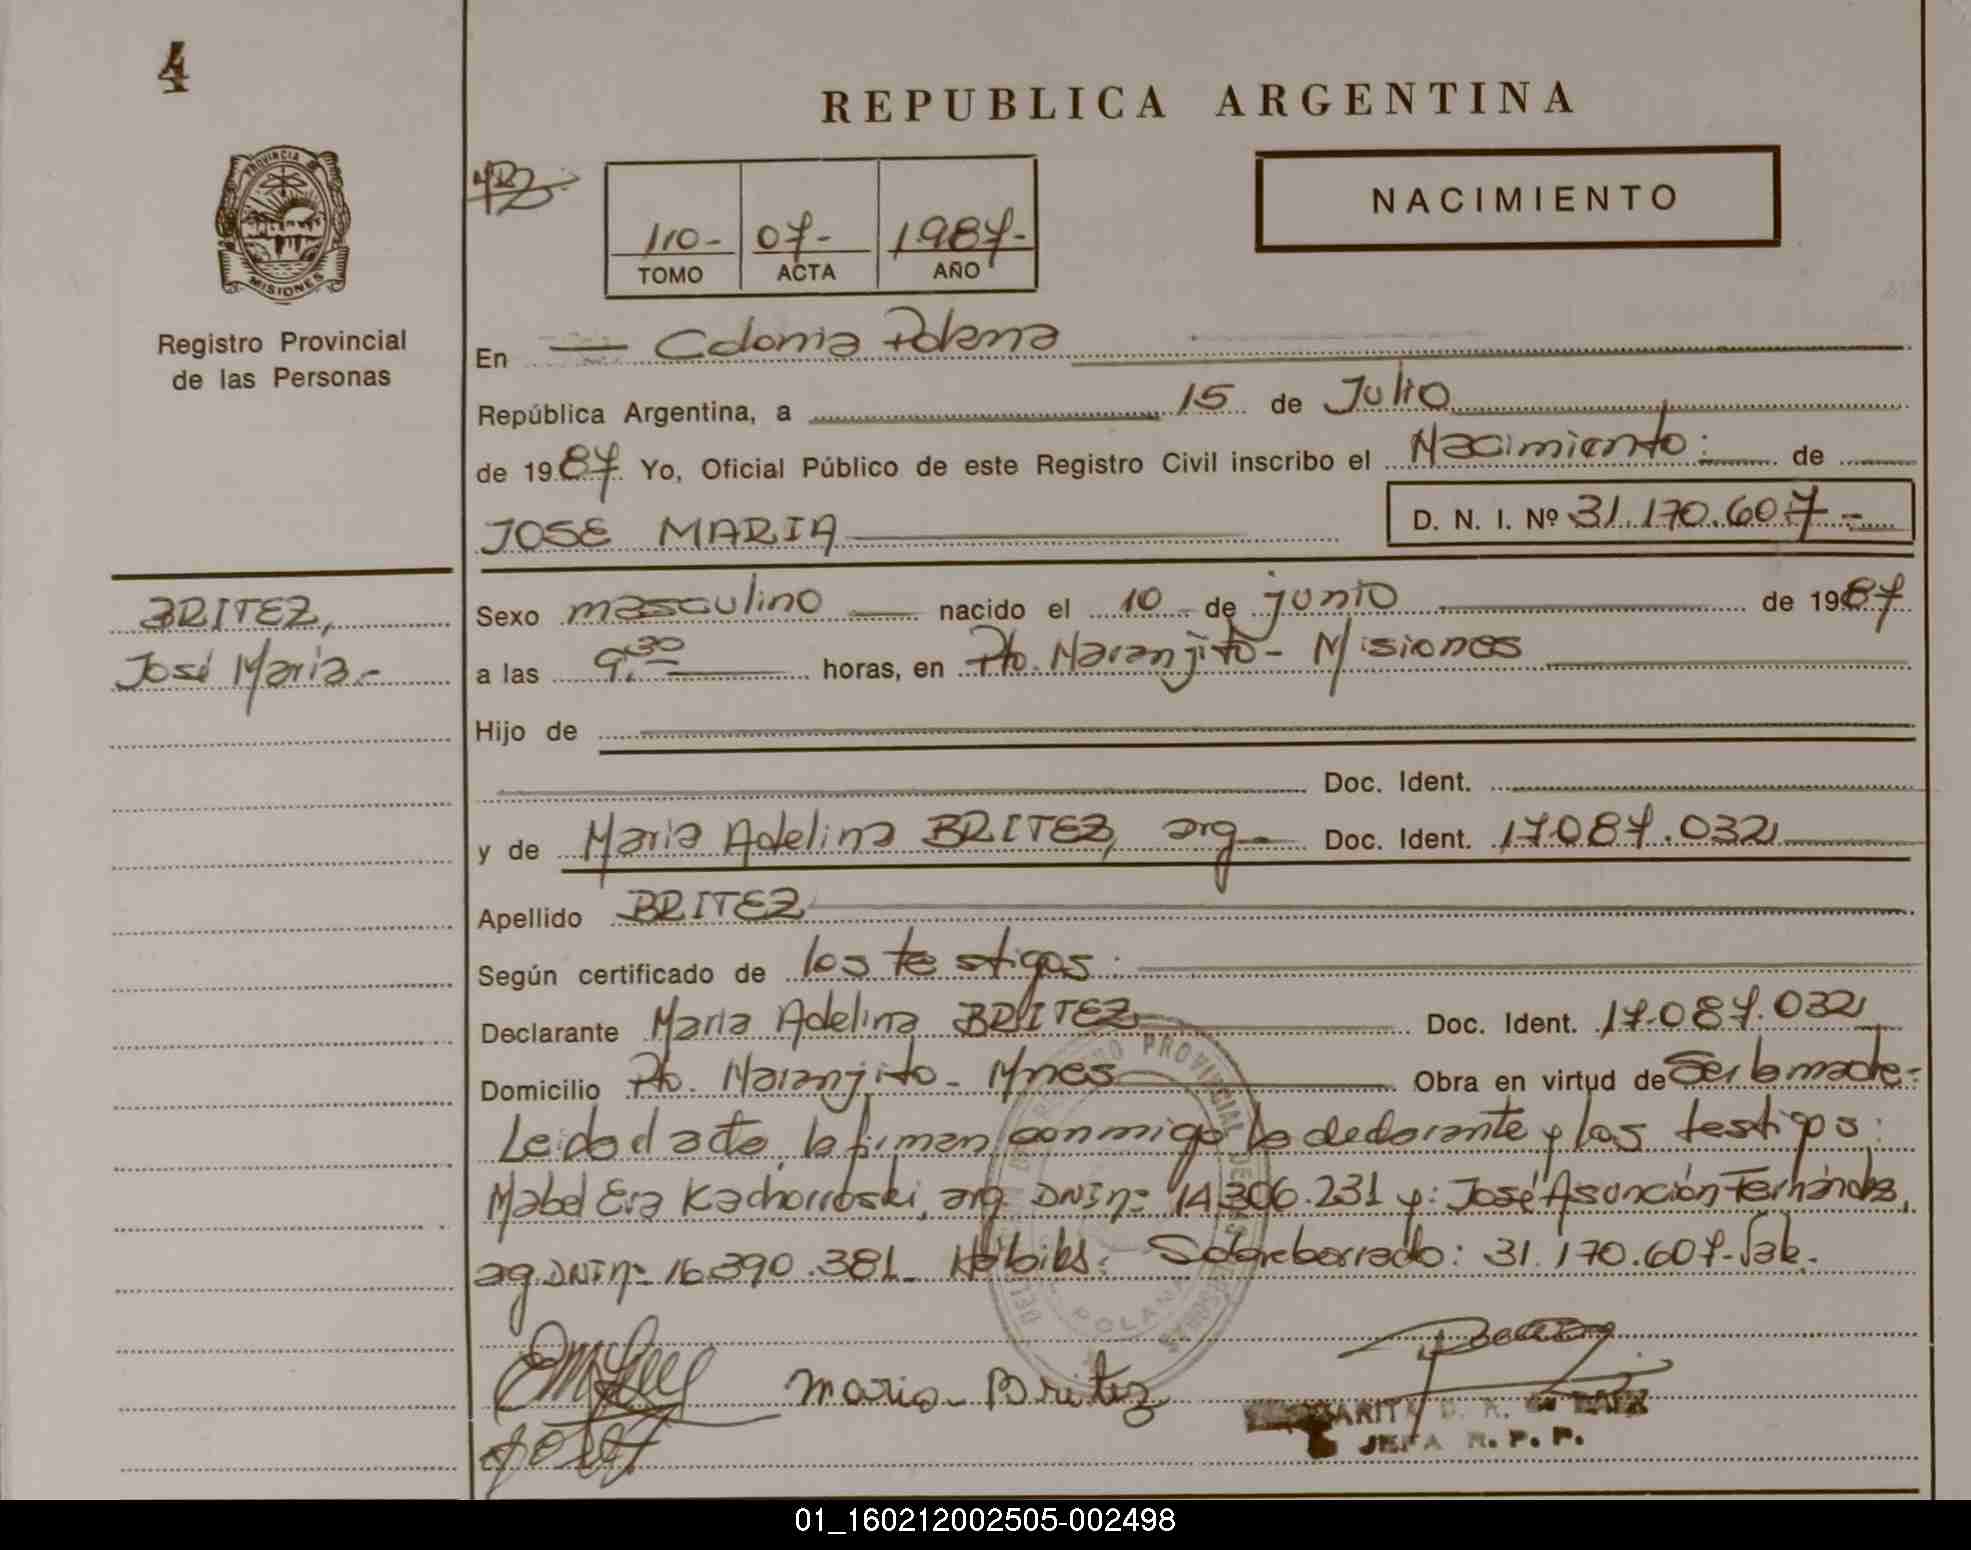 4
REPUBLICA ARGENTINA
PROVINCIA DE
MISIONES
NACIMIENTO
110- 07- 1987-
TOMO ACTA AÑO
Registro Provincial
de las Personas
En Colonia Polana
República Argentina, a 15 de Julio
de 1987 Yo, Oficial Público de este Registro Civil inscribo el Nacimiento: de
JOSE MARIA D. N. I. Nº 31.170.607-
BRITEZ,
José Maria.-
Sexo masculino nacido el 10 de junio de 1987
a las 9,30 horas, en Pto. Naranjito- Misiones
Hijo de
Doc. Ident.
y de Maria Adelina BRITEZ, arg- Doc. Ident. 17.087.032
Apellido BRITEZ
Según certificado de los testigos:
Declarante Maria Adelina BRITEZ Doc. Ident. 17.087.032
Domicilio Pto. Naranjito- Mnes Obra en virtud de Ser la madre-
Leida el acta, la firman conmigo la declarante y los testigos:
Mabel Eva Kachorroski, arg DNI nº 14.306.231 y: José Asunción Fernández,
arg. DNI nº 16.390.381- Hábiles: Sobreborrado: 31.170.607- Vale.
POLANA
Maria- Britez
JEFA R. P. P.
01_160212002505-002498